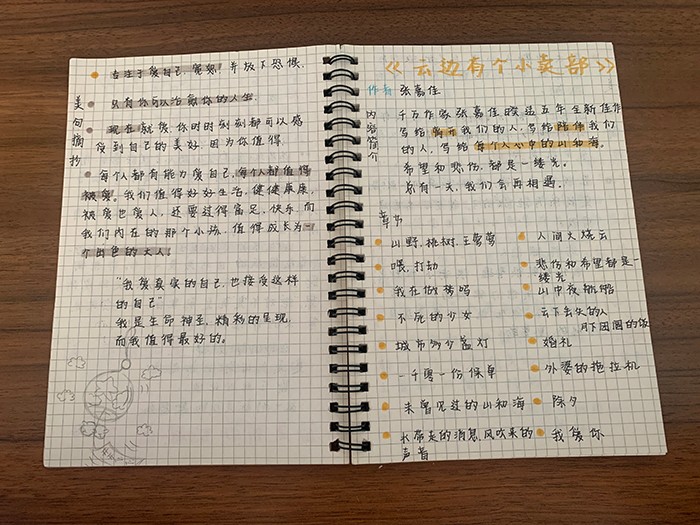 专注于爱自己,宽恕,并放下恐惧.
美句摘抄
只有你可以治愈你的人生.
现在就爱你时时刻刻都可以感
受到自己的美好.因为你值得
每个人都有能力爱自己,每个人都值得
被爱。我们值得好好生活,健健康康,
被爱也爱人,还要过得富足,快乐.而
我们内在的那个小孩,值得成长为一
个出色的大人。
"我爱真实的自己,也接受这样
的自己"
我是生命神圣,精彩的呈现,
而我值得最好的。
《云边有个小卖部》
作者 张嘉佳
内容简介
千万作家张嘉佳暌违五年全新佳作
写给离开我们的人,写给陪伴我们
的人,写给每个人心中的山和海。
希望和悲伤,都是一缕光。
总有一天,我们会再相遇。
章节
山野,桃树,王莺莺
人间火烧云
喂,打劫
悲伤和希望都是一
缕光
我在做梦吗
山中夜航船
不死的少女
云下丢失的人
月下团圆的饭
城市多少盏灯
婚礼
一千零一份保单
外婆的拖拉机
未曾见过的山和海
除夕
水带走的消息,风吹来的
声音
我爱你